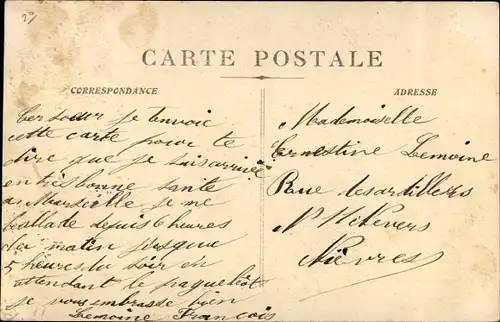 CARTE POSTALE
CORRESPONDANCE
Cer soeur je tenvoie
cette carte pour te
dire que je suis arrivée
en tres bonne sante
a Marseille je me
ballade depuis 6 heures
du matin jusque
5 heures du soir en
atendant le paquebot
je vous embrasse bien
Lemoine Francois
ADRESSE
Mademoiselle
Ernestine Lemoine
Rue des ardilliers
Nièvres